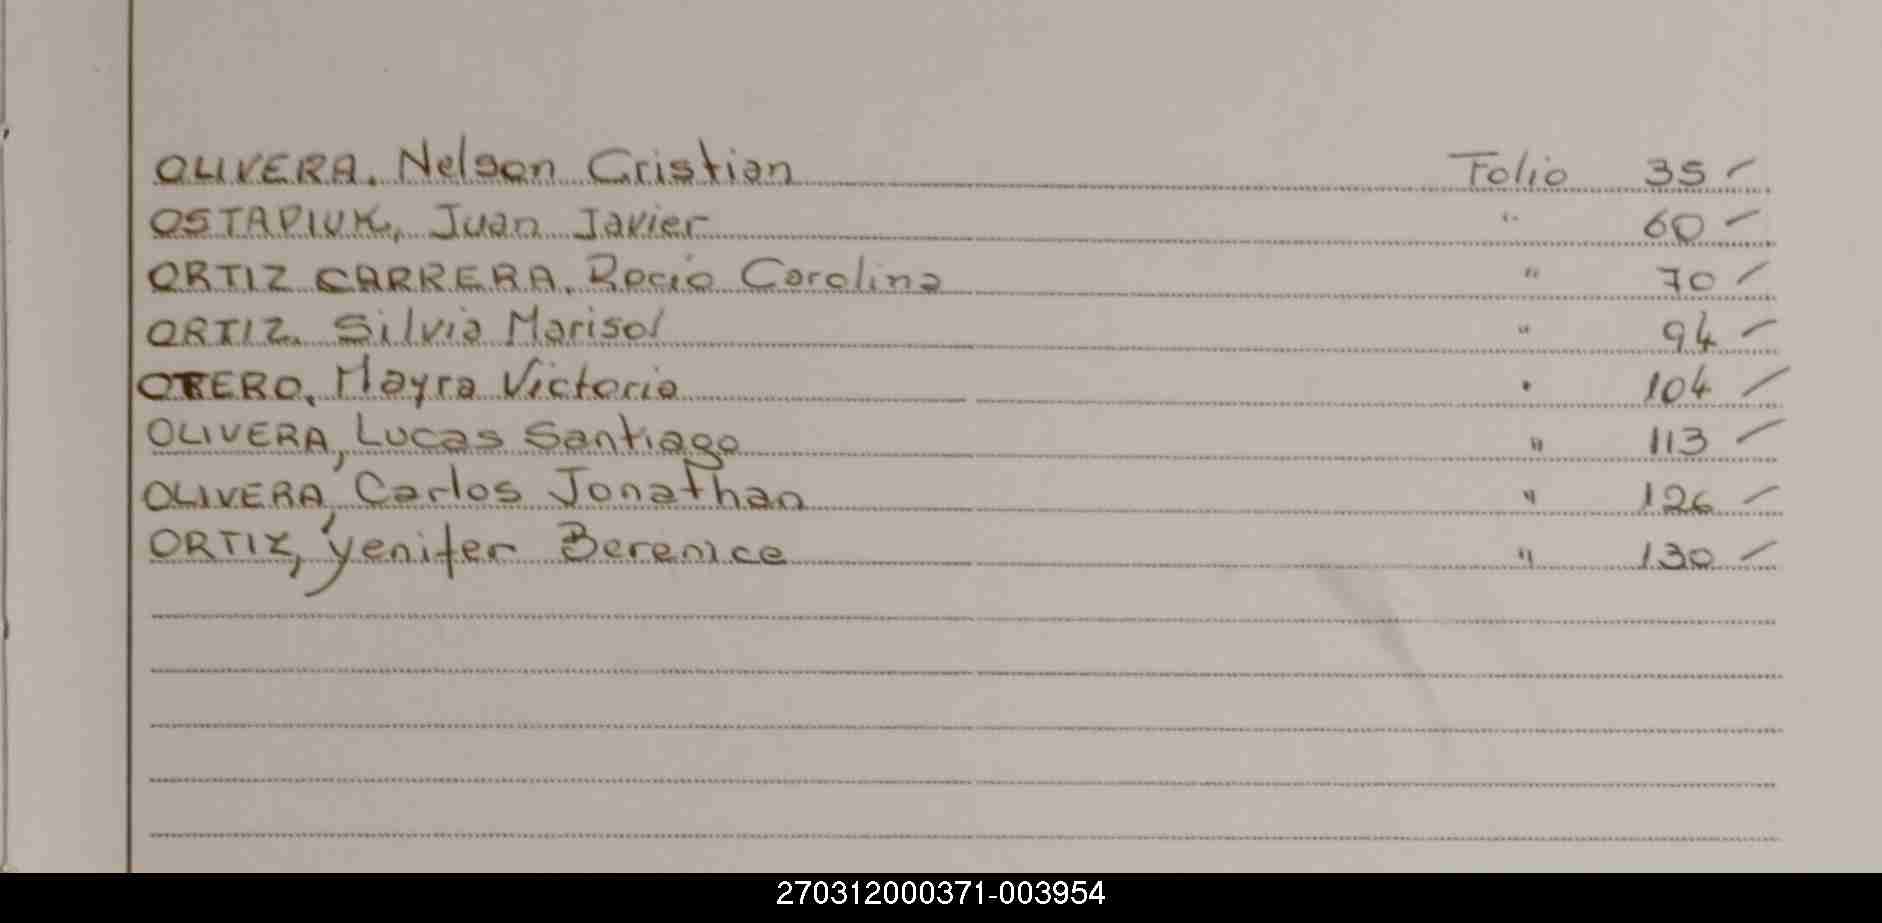 OLIVERA, Nelson Cristian Folio 35 -
OSTAPIUK, Juan Javier " 60 -
ORTIZ CARRERA, Rocio Carolina " 70 -
ORTIZ, Silvia Marisol " 94 -
OTERO, Mayra Victoria " 104 -
OLIVERA, Lucas Santiago " 113 -
OLIVERA, Carlos Jonathan " 126 -
ORTIZ, Yenifer Berenice " 130 -
270312000371-003954